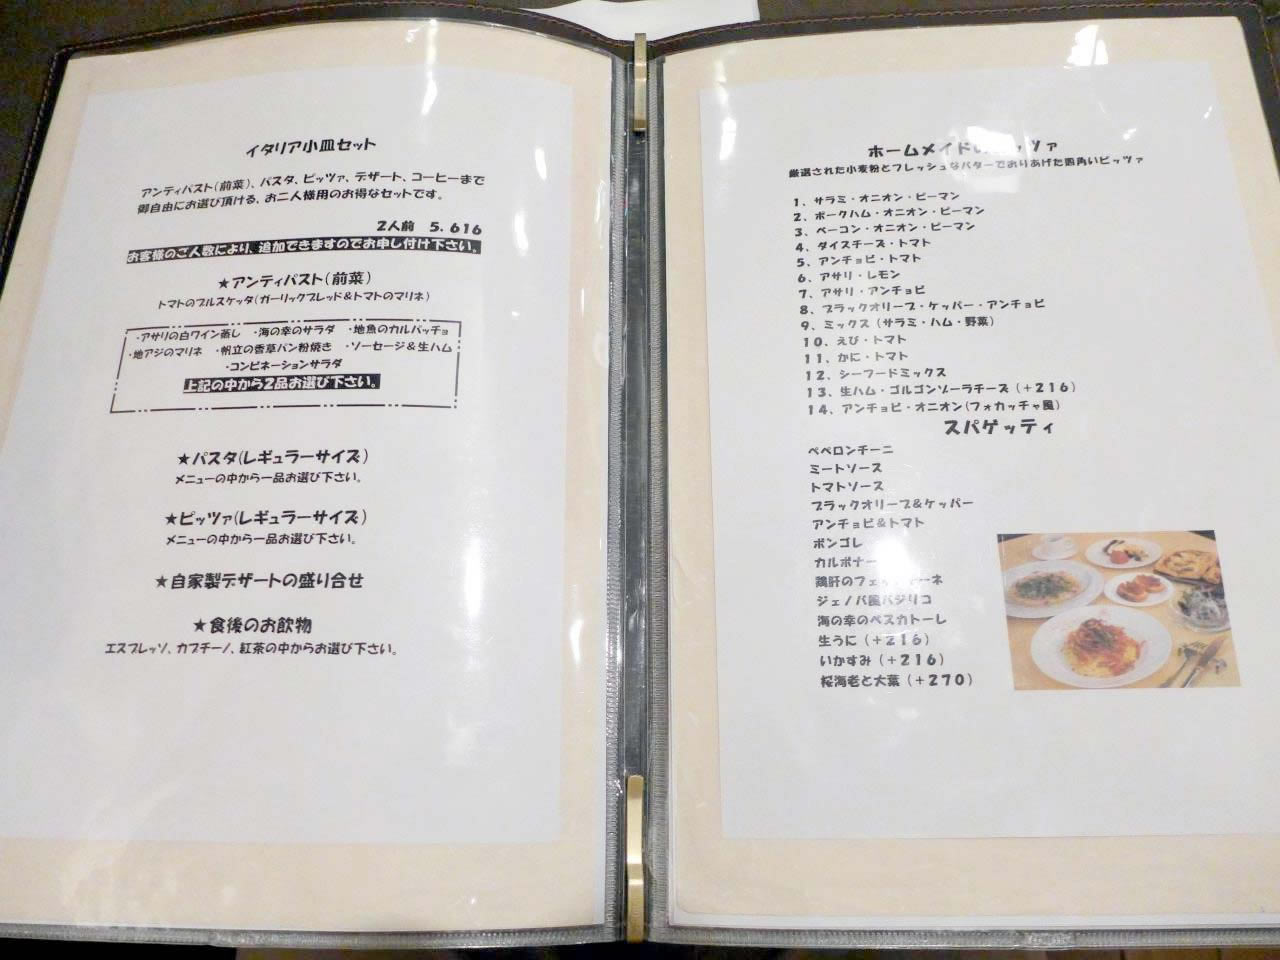 イタリア小皿セット
アンティパスト(前菜)、パスタ、ピッツァ、デザート、コーヒーまで
御自由にお選び頂ける、お二人様用のお得なセットです。
2人前 5.616
お客様のご人数により、追加できますのでお申し付け下さい。
★アンティパスト(前菜)
トマトのブルスケッタ(ガーリックブレッド&トマトのマリネ)
・アサリの白ワイン蒸し ・海の幸のサラダ ・地魚のカルパッチョ
・地アジのマリネ ・帆立の香草パン粉焼き ・ソーセージ&生ハム
・コンビネーションサラダ
上記の中から2品お選び下さい。
★パスタ(レギュラーサイズ)
メニューの中から一品お選び下さい。
★ピッツァ(レギュラーサイズ)
メニューの中から一品お選び下さい。
★自家製デザートの盛り合せ
★食後のお飲物
エスプレッソ、カプチーノ、紅茶の中からお選び下さい。
ホームメイド ッツァ
厳選された小麦粉とフレッシュなバターでおりあげた四角いピッツァ
1、サラミ・オニオン・ピーマン
2、ポークハム・オニオン・ピーマン
3、ベーコン・オニオン・ピーマン
4、ダイスチーズ・トマト
5、アンチョビ・トマト
6、アサリ・レモン
7、アサリ・アンチョビ
8、ブラックオリーブ・ケッパー・アンチョビ
9、ミックス(サラミ・ハム・野菜)
10、えび・トマト
11、かに・トマト
12、シーフードミックス
13、生ハム・ゴルゴンゾーラチーズ(+216)
14、アンチョビ・オニオン(フォカッチャ風)
スパゲッティ
ペペロンチーニ
ミートソース
トマトソース
ブラックオリーブ&ケッパー
アンチョビ&トマト
ボンゴレ
カルボナー
鶏肝のフェ ーネ
ジェノバ風バジリコ
海の幸のペスカトーレ
生うに(+216)
いかすみ(+216)
桜海老と大葉(+270)